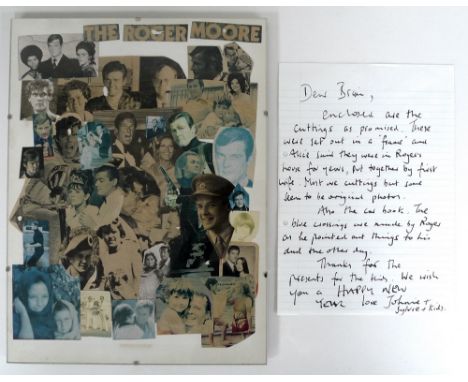 THE ROGER MOORE
Dear Brian,
Enclosed are the
cuttings as promised. These
were set out in a frame and
Alice said they were in Rogers
house for years, put together by first
wife. Most are cuttings but some
seem to be original photos.
Also the car book. The
blue crossings were made by Roger
as he pointed out things to his
dad the other day.
Thanks for the
presents for the kids. We wish
you a HAPPY NEW
YEAR love Johnnie +
Sylvie + Kids.